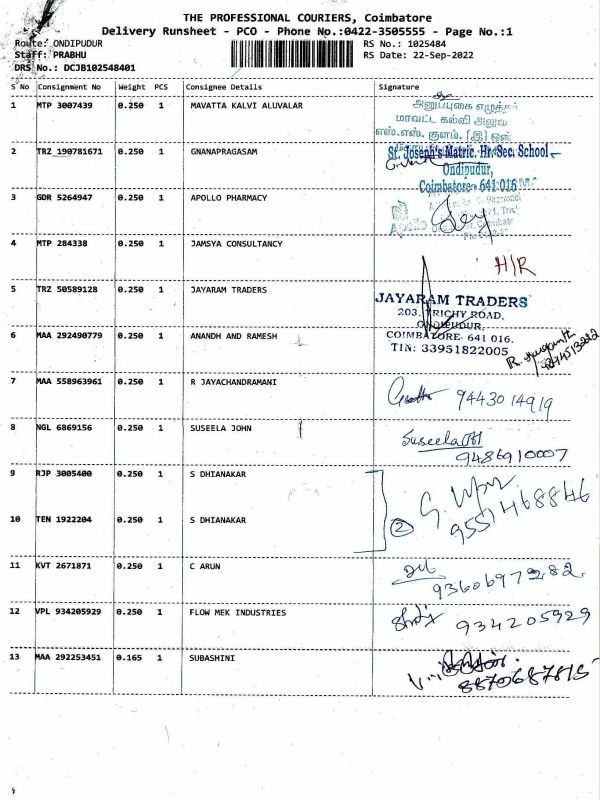 THE PROFESSIONAL COURIERS, Coimbatore
Delivery Runsheet - PCO - Phone No.:0422-3505555 - Page No.:1
Route: ONDIPUDUR RS No.: 1025484
Staff: PRABHU RS Date: 22-Sep-2022
DRS No.: DCJB102548401
S No Consignment No Weight PCS Consignee Details Signature
1 MTP 3007439 0.250 1 MAVATTA KALVI ALUVALAR
அனுப்புகை
மாவட்ட கல்வி
எஸ்.எஸ். குளம்,
2 TRZ 190781671 0.250 1 GNANAPRAGASAM St. Joseph's Matric. Hr. Sec. School
Ondipudur,
Coimbatore - 641 016
3 GDR 5264947 0.250 1 APOLLO PHARMACY
4 MTP 284338 0.250 1 JAMSYA CONSULTANCY H/R
5 TRZ 50589128 0.250 1 JAYARAM TRADERS JAYARAM TRADERS
203, TRICHY ROAD,
ONDIPUDUR,
6 MAA 292490779 0.250 1 ANANDH AND RAMESH COIMBATORE- 641 016.
TIN: 33951822005
7 MAA 558963961 0.250 1 R JAYACHANDRAMANI 9443014919
8 NGL 6869156 0.250 1 SUSEELA JOHN Suseela
9486910007
9 RJP 3005400 0.250 1 S DHIANAKAR
10 TEN 1922204 0.250 1 S DHIANAKAR 2 9551468846
11 KVT 2671871 0.250 1 C ARUN
9360697282
12 VPL 934205929 0.250 1 FLOW MEK INDUSTRIES 934205929
13 MAA 292253451 0.165 1 SUBASHINI
8870687815